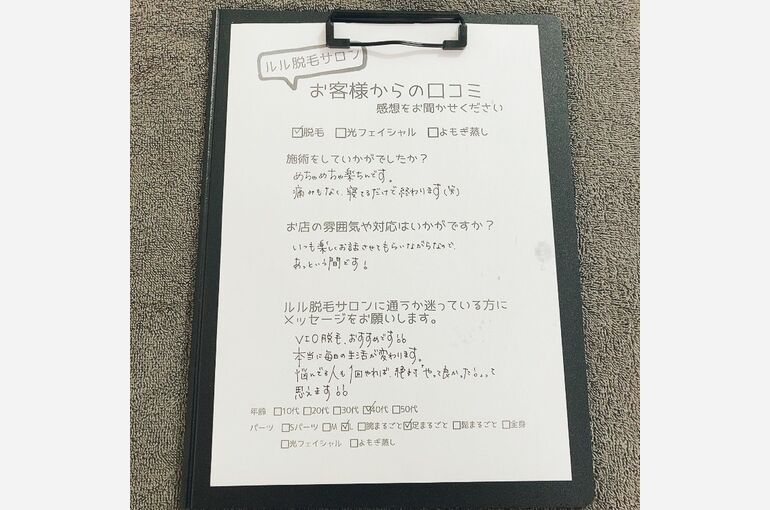 ルル脱毛サロン
お客様からの口コミ
感想をお聞かせください
☑脱毛 □光フェイシャル □よもぎ蒸し
施術をしていかがでしたか？
めちゃめちゃ楽ちんです。
痛みもなく、寝てるだけで終わります(笑)
お店の雰囲気や対応はいかがですか？
いつも楽しくお話させてもらいながらなので、
あっという間です！
ルル脱毛サロンに通うか迷っている方に
メッセージをお願いします。
VIO脱毛、おすすめです
本当に毎日の生活が変わります。
悩んでる人も1回やれば、絶対"やって良かった"って
思えます
年齢 □10代 □20代 □30代 ☑40代 □50代
パーツ □Sパーツ □M ☑L □腕まるごと ☑足まるごと □髭まるごと □全身
□光フェイシャル □よもぎ蒸し